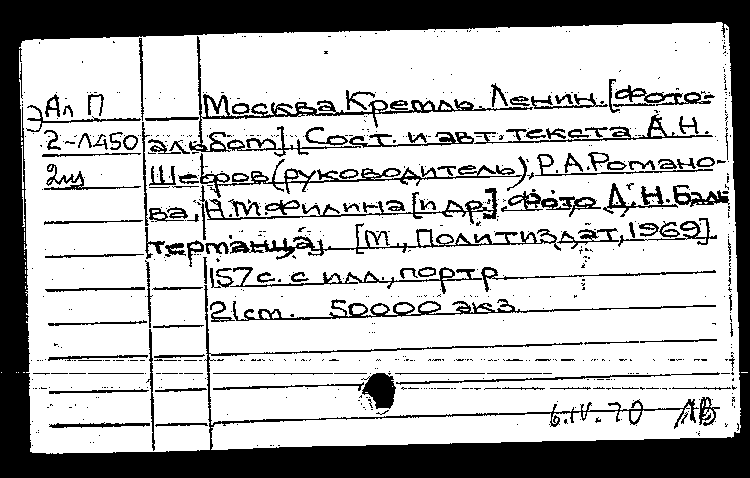 Ал П Москва. Кремль. Ленин. [Фото-
2-Л450 альбом]. [Сост. и авт. текста А.Н.
2щ Шефов (руководитель), Р.А. Романо-
ва, Н.М. Филина [и др.]. Фото Д.Н. Баль-
терманца]. [М., Политиздат, 1969].
157 с. с илл., портр.
21 cm. 50000 экз.
6.IV.70